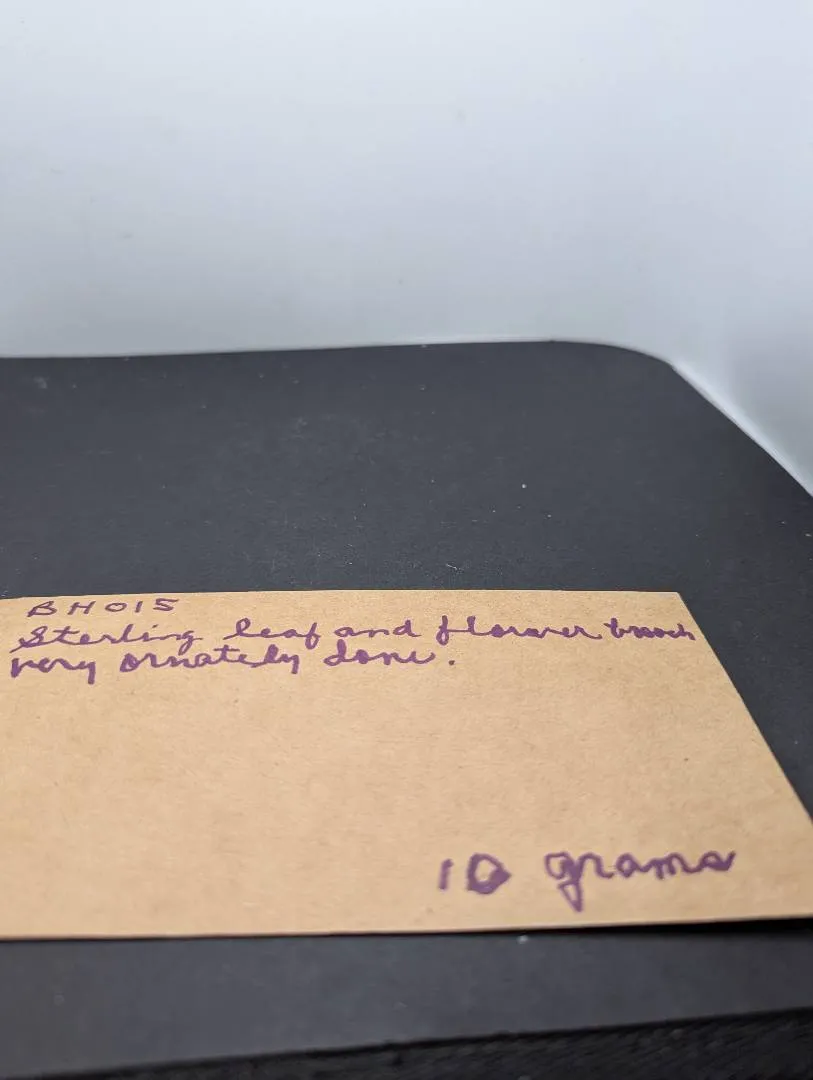 BH015
Sterling leaf and flower brooch
very ornately done.
10 grams